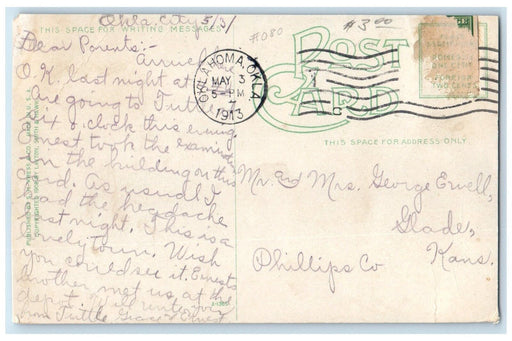 Okla. City 5/3/
#080
#3.00
THIS SPACE FOR WRITING MESSAGES
POST CARD
Dear Parents:-
Arrived
O.K. last night at
Are going to Tuttle
six o'clock this evening
Ernest took the examination
in the building on this
card. As usual I
had the headache
last night. This is a
lovely town. Wish
you could see it. Ernest's
brother met us at the
depot. Will write you
from Tuttle Grace & Ernest
OKLAHOMA, OKLA.
MAY 3
5-PM
1913
THIS SPACE FOR ADDRESS ONLY.
Mr. and Mrs. George Ewell,
Glade,
Phillips Co Kans.